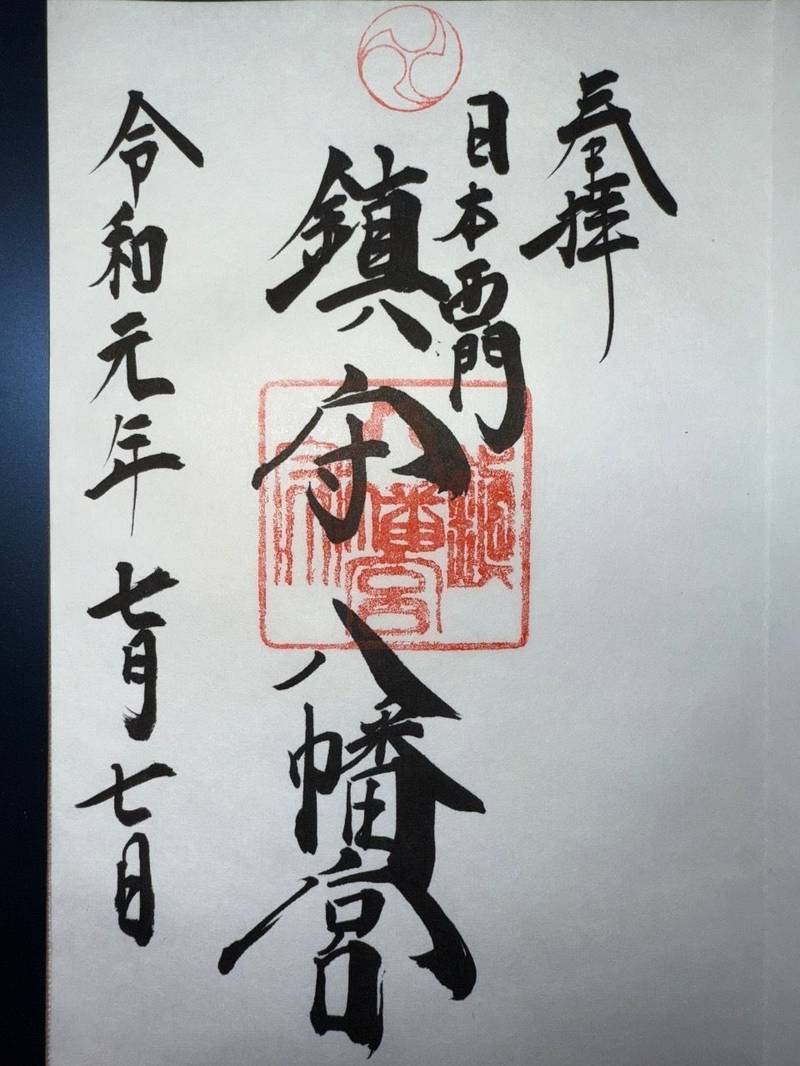 奉拝
日本西門
鎮守八幡宮
鎮守八幡宮
令和元年七月七日